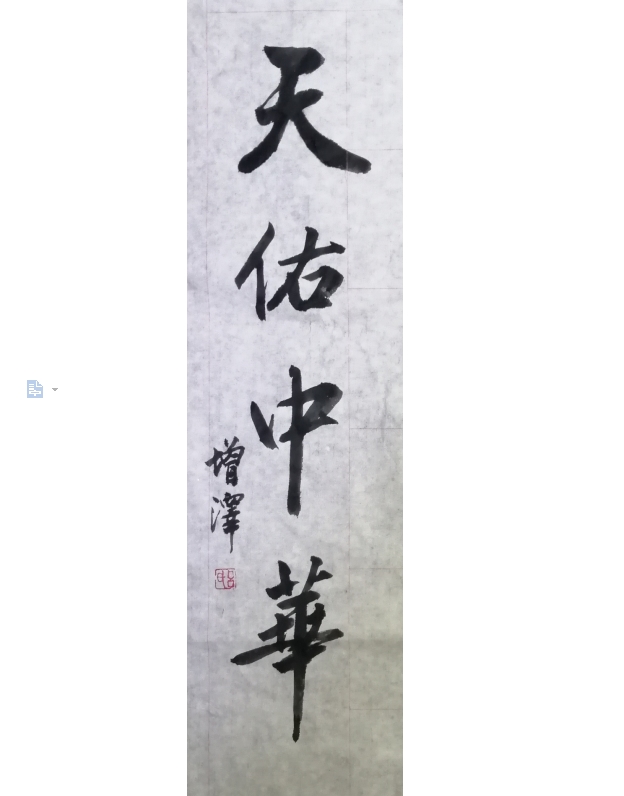 天佑中華
增澤